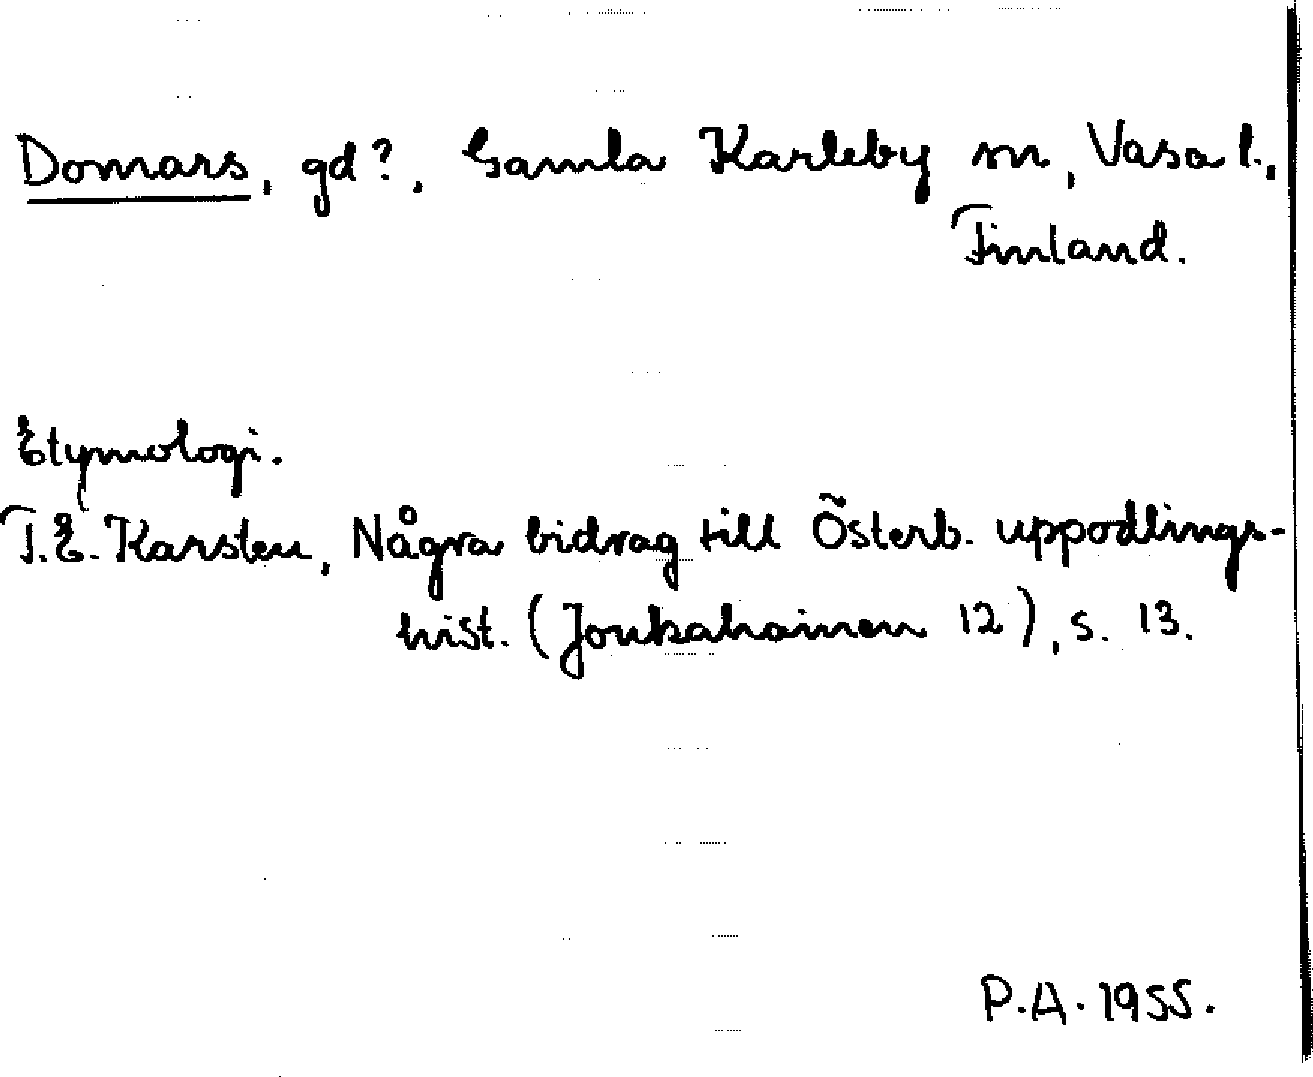 Domars, gd?, Gamla Karleby sn, Vasa l.,
Finland.
Etymologi.
T.E. Karsten, Några bidrag till Österb. uppodlings-
hist. (Joukahainen 12), s. 13.
P.A. 1955.